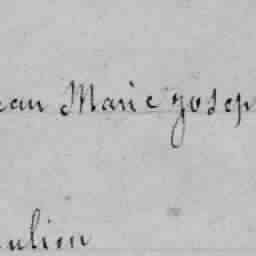 ean Marie Josep
ulien